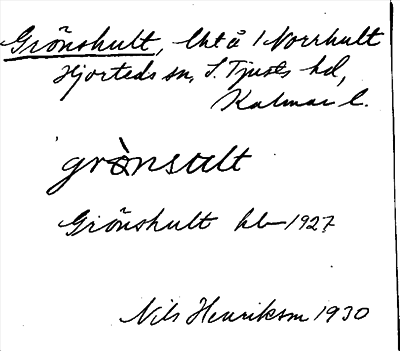 Grönshult, lht å Norrhult
Hjorteds sn, S. Tjusts hd,
Kalmar l.
grònsult
Grönshult hb 1927
Nils Henrikson 1930